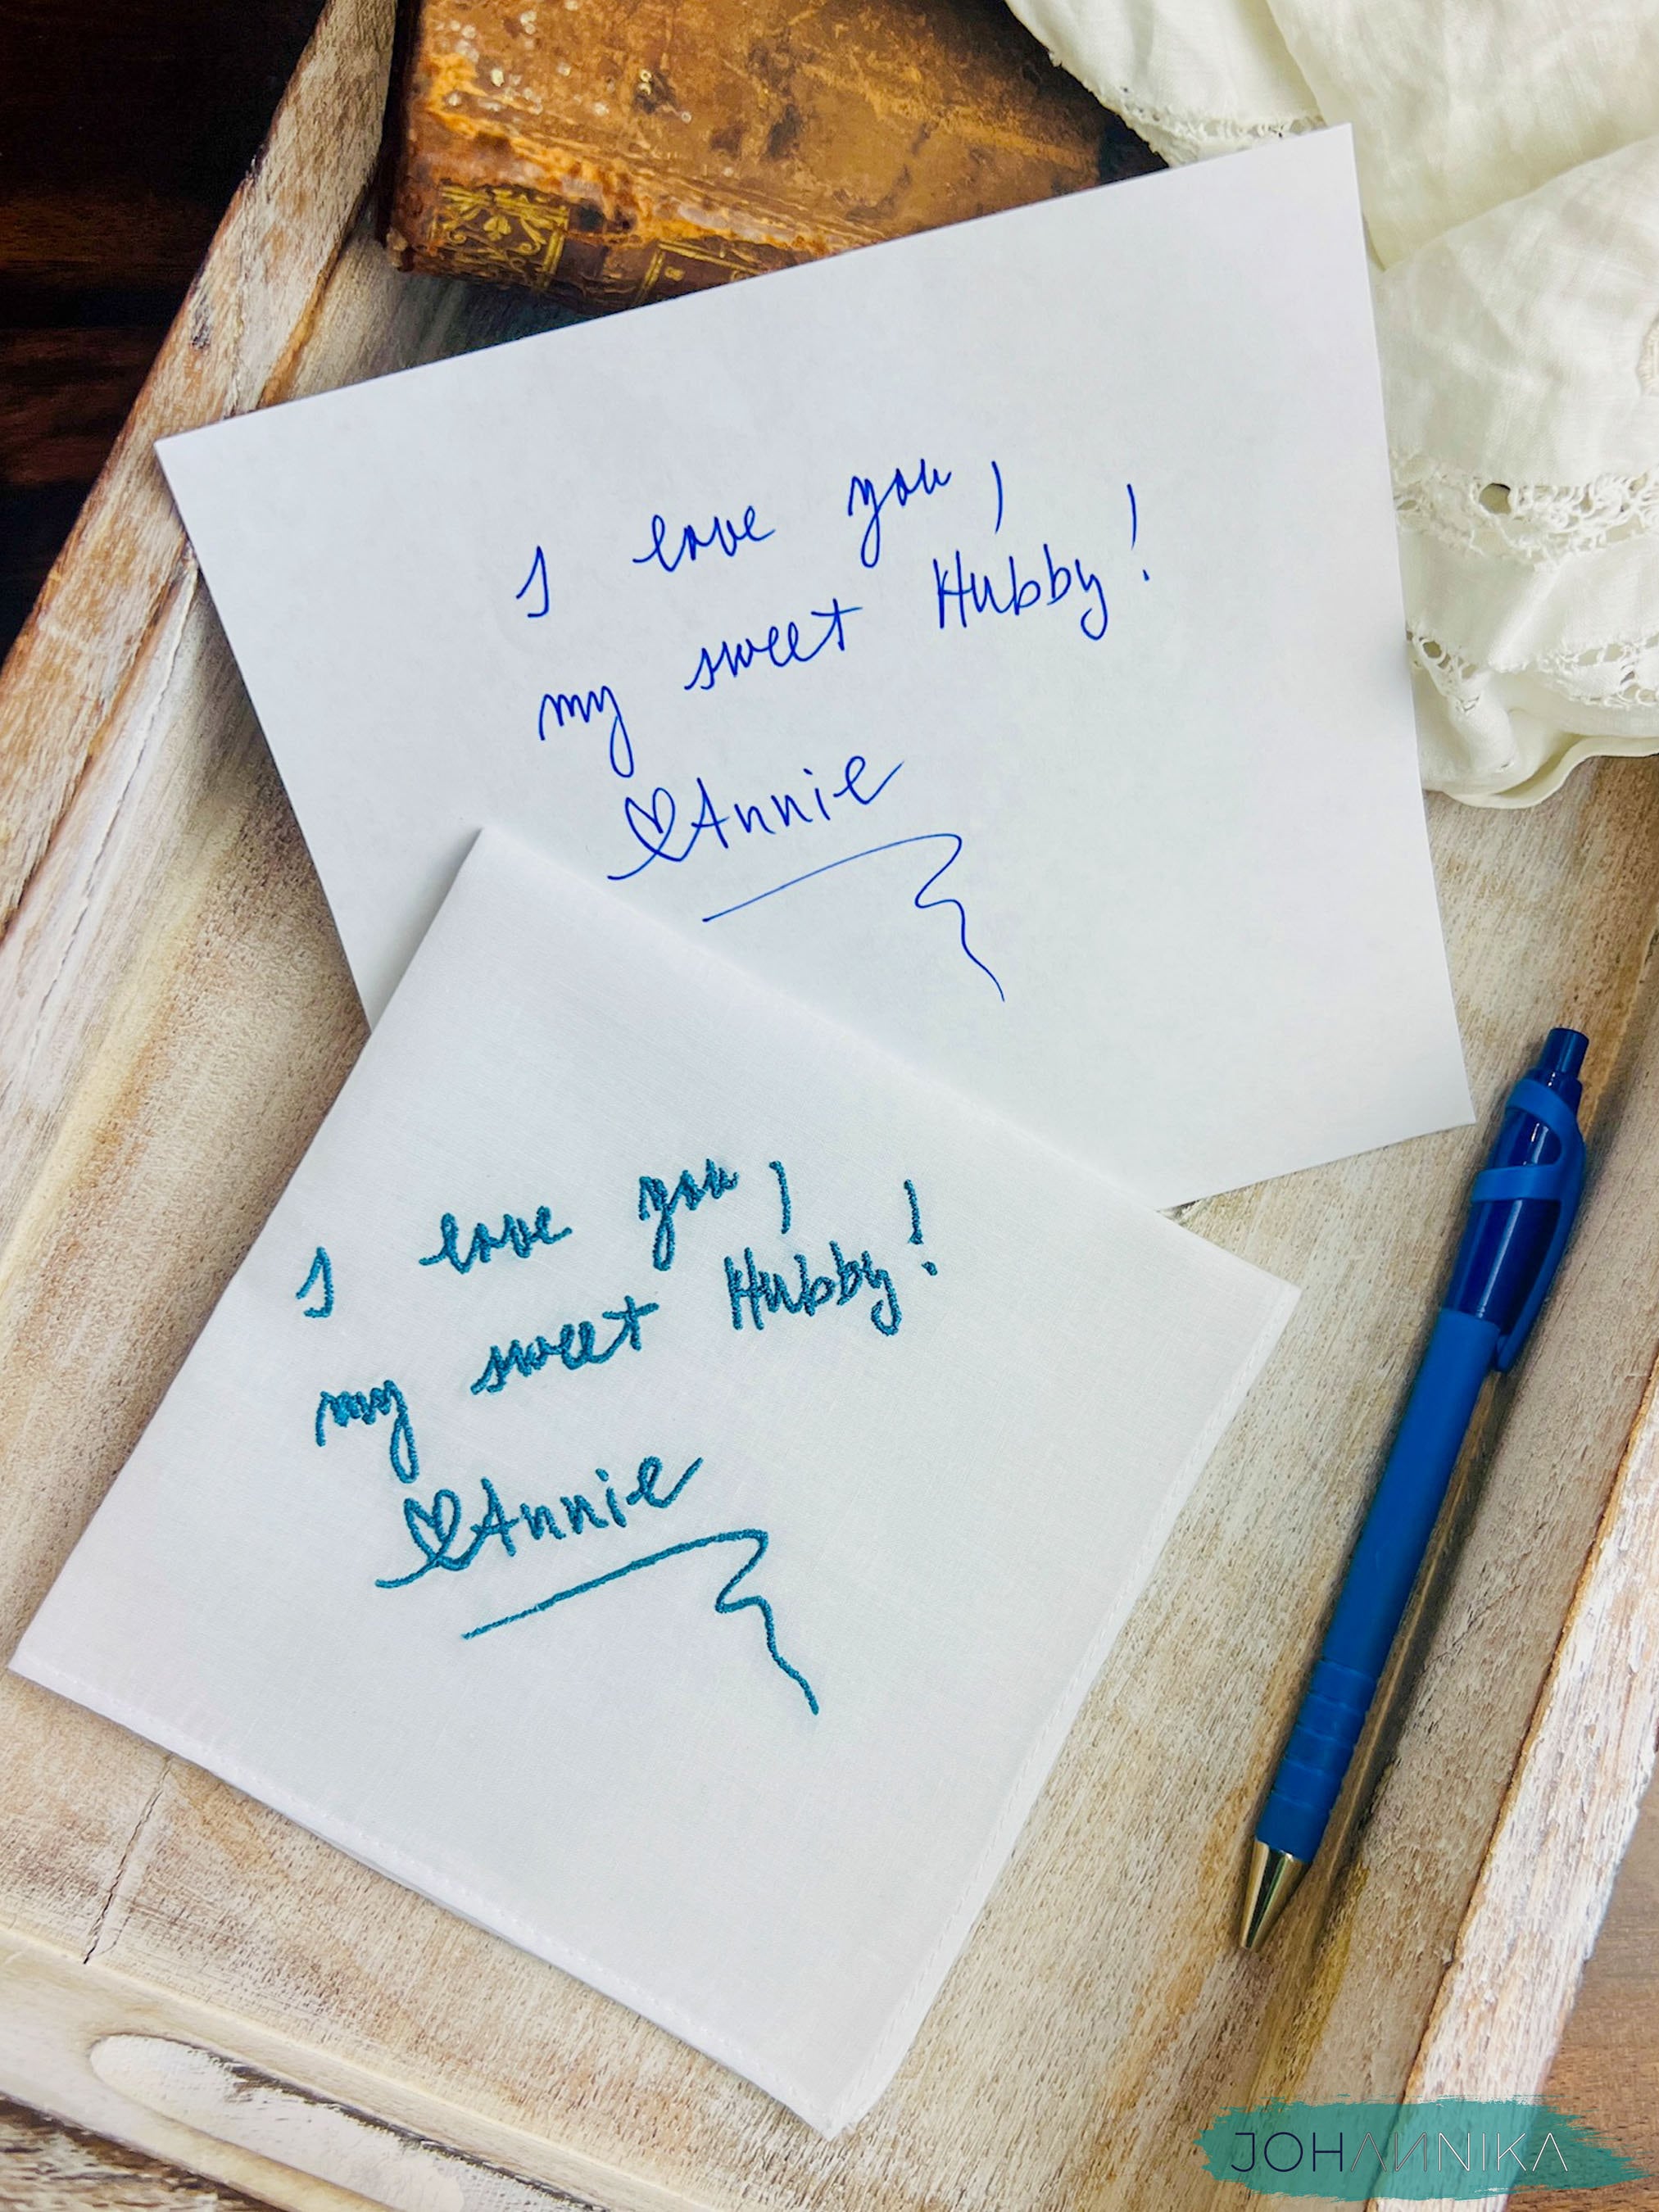 I love you,
my sweet Hubby!
♡Annie
I love you,
my sweet Hubby!
♡Annie
JOHANNIKA